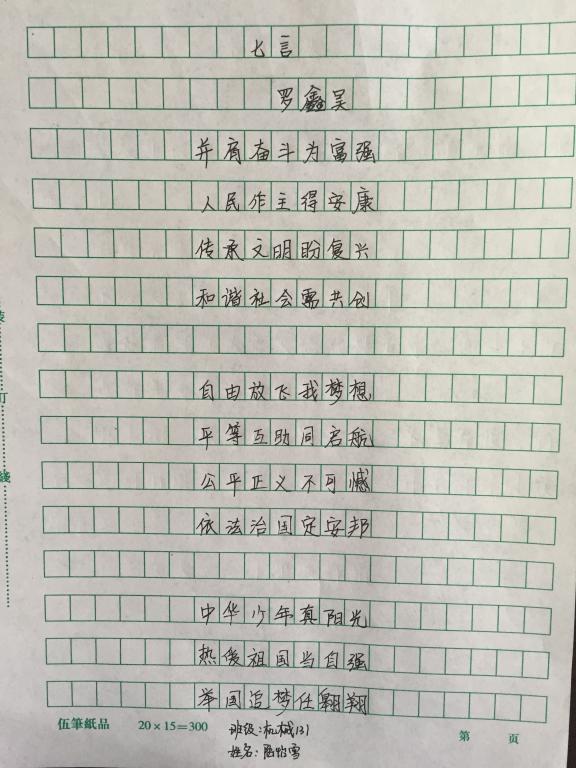 七言
罗鑫昊
并肩奋斗为富强
人民作主得安康
传承文明盼复兴
和谐社会需共创
自由放飞我梦想
平等互助同启航
公平正义不可憾
依法治国定安邦
中华少年真阳光
热爱祖国当自强
举国追梦任翱翔
装
订
线
伍筆紙品 20×15=300 第 页
班级:机械131
姓名: